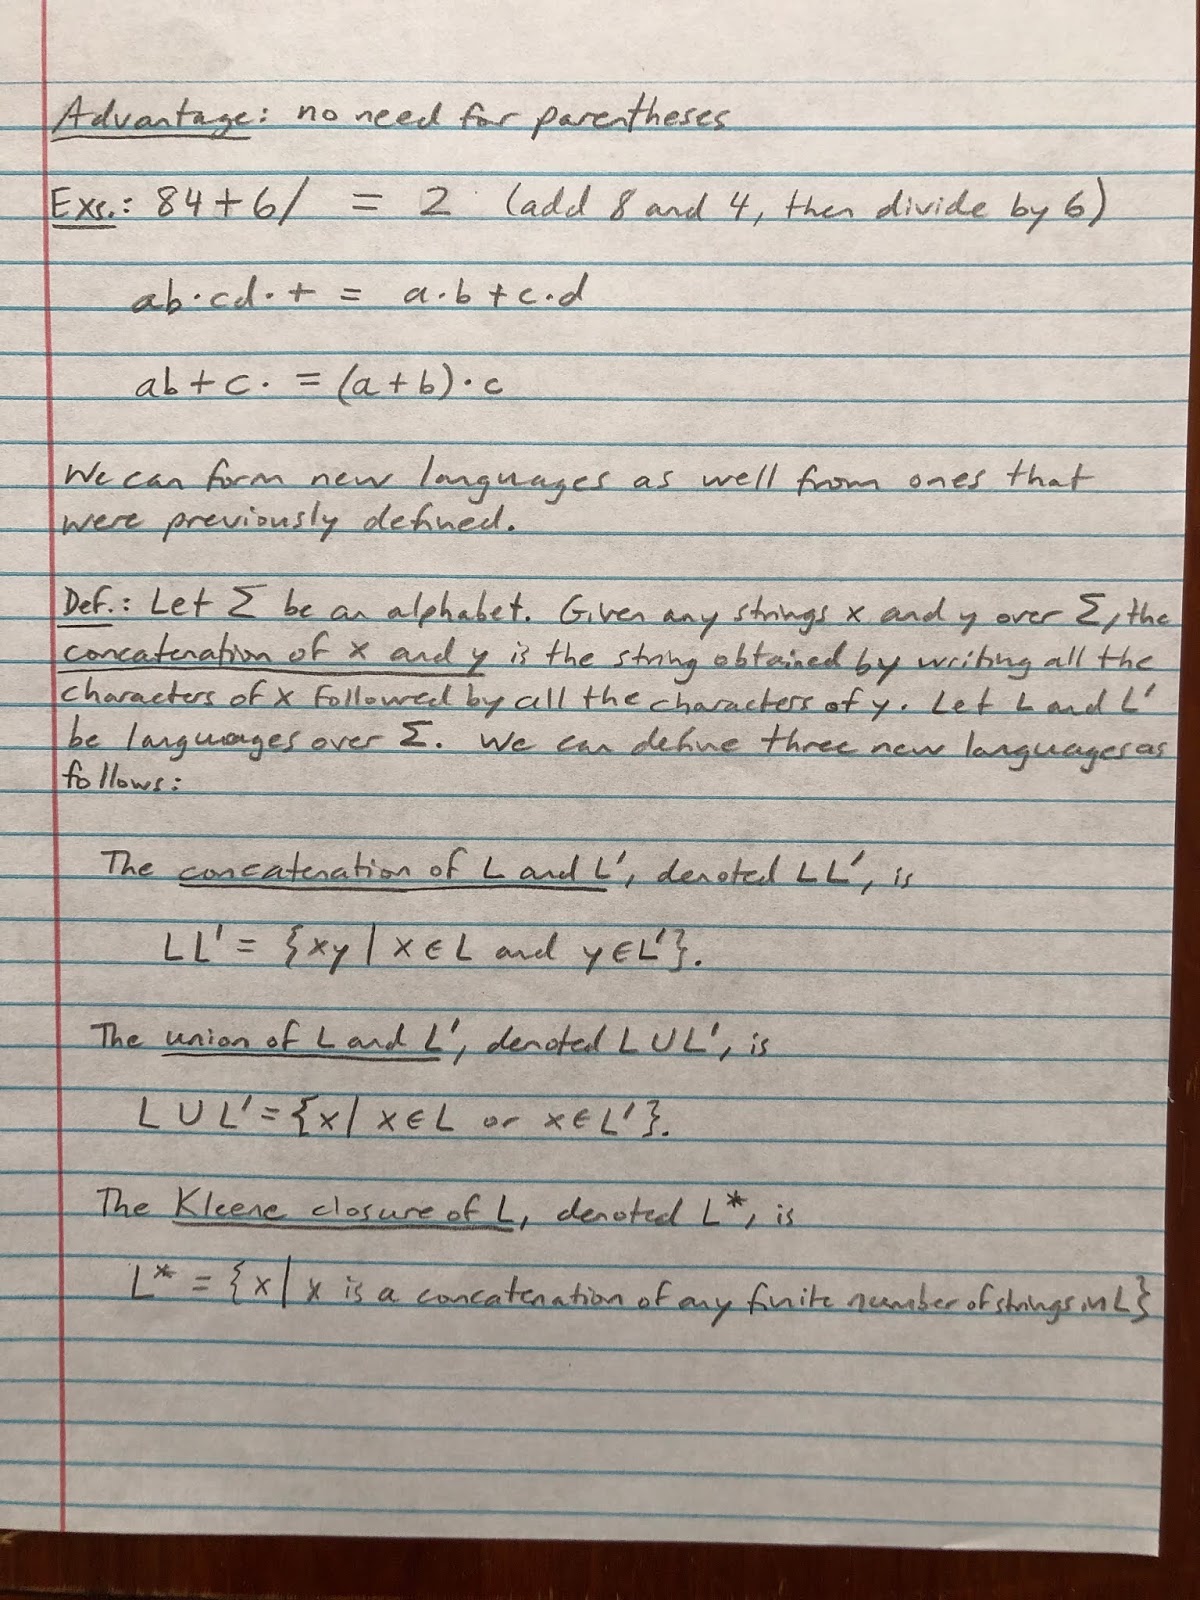 Advantage: no need for parentheses
Exs.: 84+6/ = 2 (add 8 and 4, then divide by 6)
ab·cd·+ = a·b+c·d
ab+c· = (a+b)·c
We can form new languages as well from ones that
were previously defined.
Def.: Let Σ be an alphabet. Given any strings x and y over Σ, the
concatenation of x and y is the string obtained by writing all the
characters of x followed by all the characters of y. Let L and L'
be languages over Σ. We can define three new languages as
follows:
The concatenation of L and L', denoted LL', is
LL' = {xy | x ∈ L and y ∈ L'}.
The union of L and L', denoted L ∪ L', is
L ∪ L' = {x | x ∈ L or x ∈ L'}.
The Kleene closure of L, denoted L*, is
L* = {x | x is a concatenation of any finite number of strings in L}